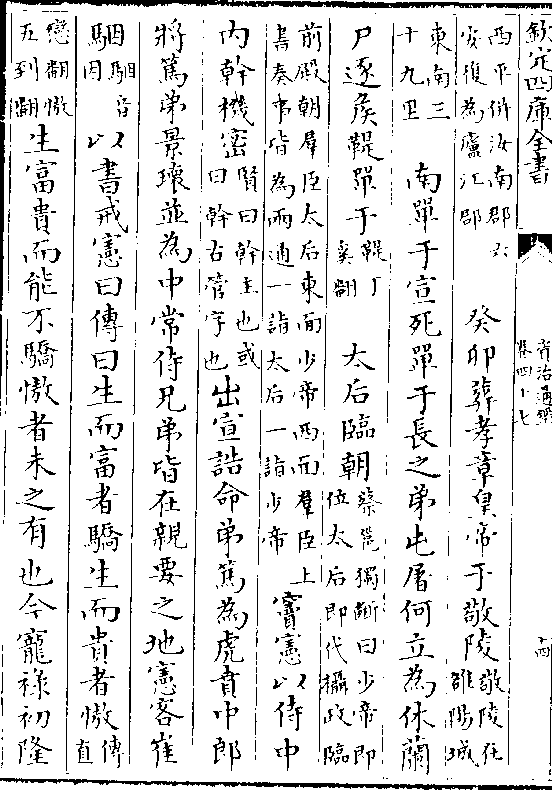 欽定四庫全書
資治通鑑
卷四十七
西平併汝南郡六
安復為廬江郡
癸卯葬孝章皇帝于敬陵
敬陵在
雒陽城
東南三
十九里
南單于宣死單于長之弟屯屠何立為休蘭
尸逐侯鞮單于
鞮丁
奚翻
太后臨朝
蔡邕獨斷曰少帝即
位太后即代攝政臨
前殿朝羣臣太后東面少帝西面羣臣上
書奏事皆為兩通一詣太后一詣少帝
竇憲以侍中
內幹機密
賢曰幹主也或
曰幹古管字也
出宣誥命弟篤為虎賁中郎
將篤弟景瓌並為中常侍兄弟皆在親要之地憲客崔
駰
駰音
因
以書戒憲曰傳曰生而富者驕生而貴者慠
傳
直
戀翻慠
五到翻
生富貴而能不驕慠者未之有也今寵祿初隆